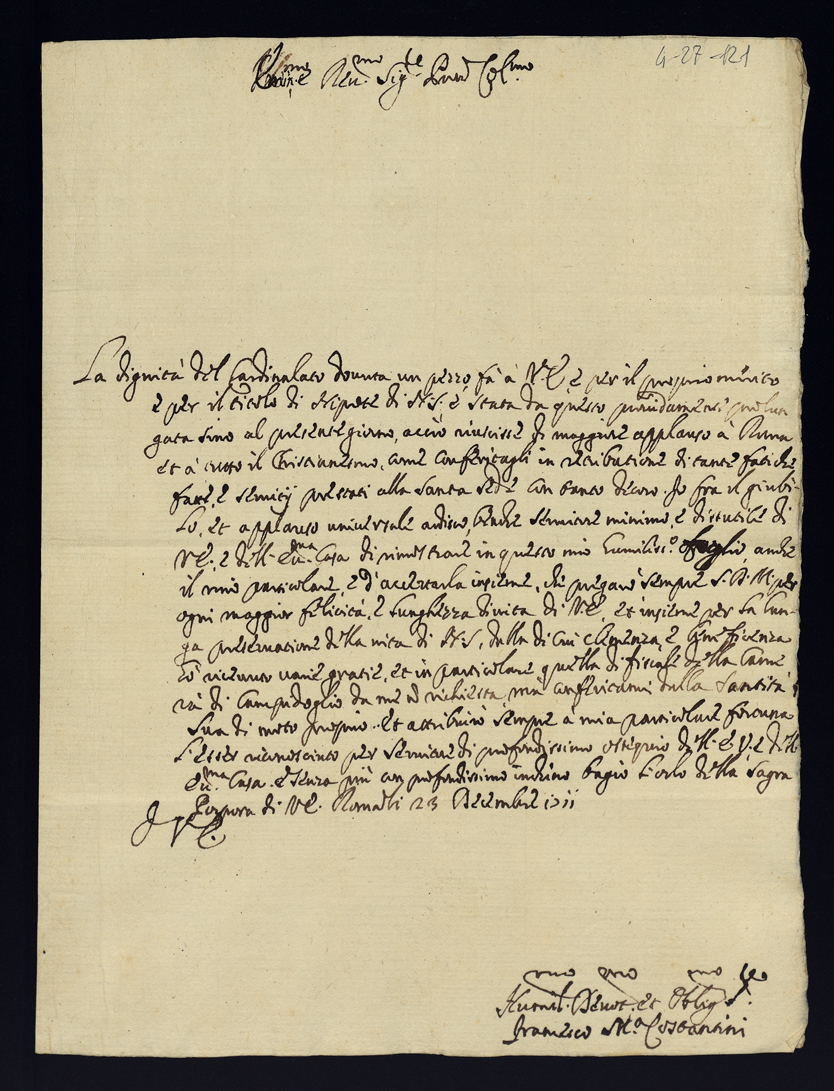 4-27-121
Em.mo e Rev.mo Sig.re Pron Col.mo
La dignità del Cardinalato dovuta un pezzo fà à V.E. e per il proprio merito
e per il titolo di Nipote di N.S. è stata da questo prolun
gata sino al presente giorno, acciò riuscisse di maggiore applauso à Roma
et à tutto il Christianesmo, come conferitagli in retributione di tante fatiche
fatte, e servitij prestati alla Santa Sede con tanto decoro. Io fra il giubi-
lo, et applauso universale ardisco, benche servitore minimo, e disutile di
V.E., e dell' Em.ma Casa di rimostrare in questo mio humilis.o foglio, anche
il mio particolare, e d'accertarla insieme, che pregarò sempre S.D.M. per
ogni maggior felicità, e lunghezza di vita di V.E. et insieme per la lun-
ga preservatione della vita di N.S., dalla di cui clemenza, e beneficenza
hò ricevuto varie gratie, et in particolare quella di fiscale della Came
ra di Campidoglio da me nè richiesta, mà conferitami dalla Santità
Sua di moto proprio. Et attribuirò sempre à mia particolare fortuna
l'esser riconosciuto per servitore di profondissimo ossequio dell' E.V. e dell'
Em.ma Casa. e senza più con profondissimo inchino bagio l'orlo della Sagra
Porpora di V.E. Roma li 23 Decembre 1711
D. V. E.
Humil.mo Devot.mo et Oblig.mo S.re
Francesco M.a Costantini